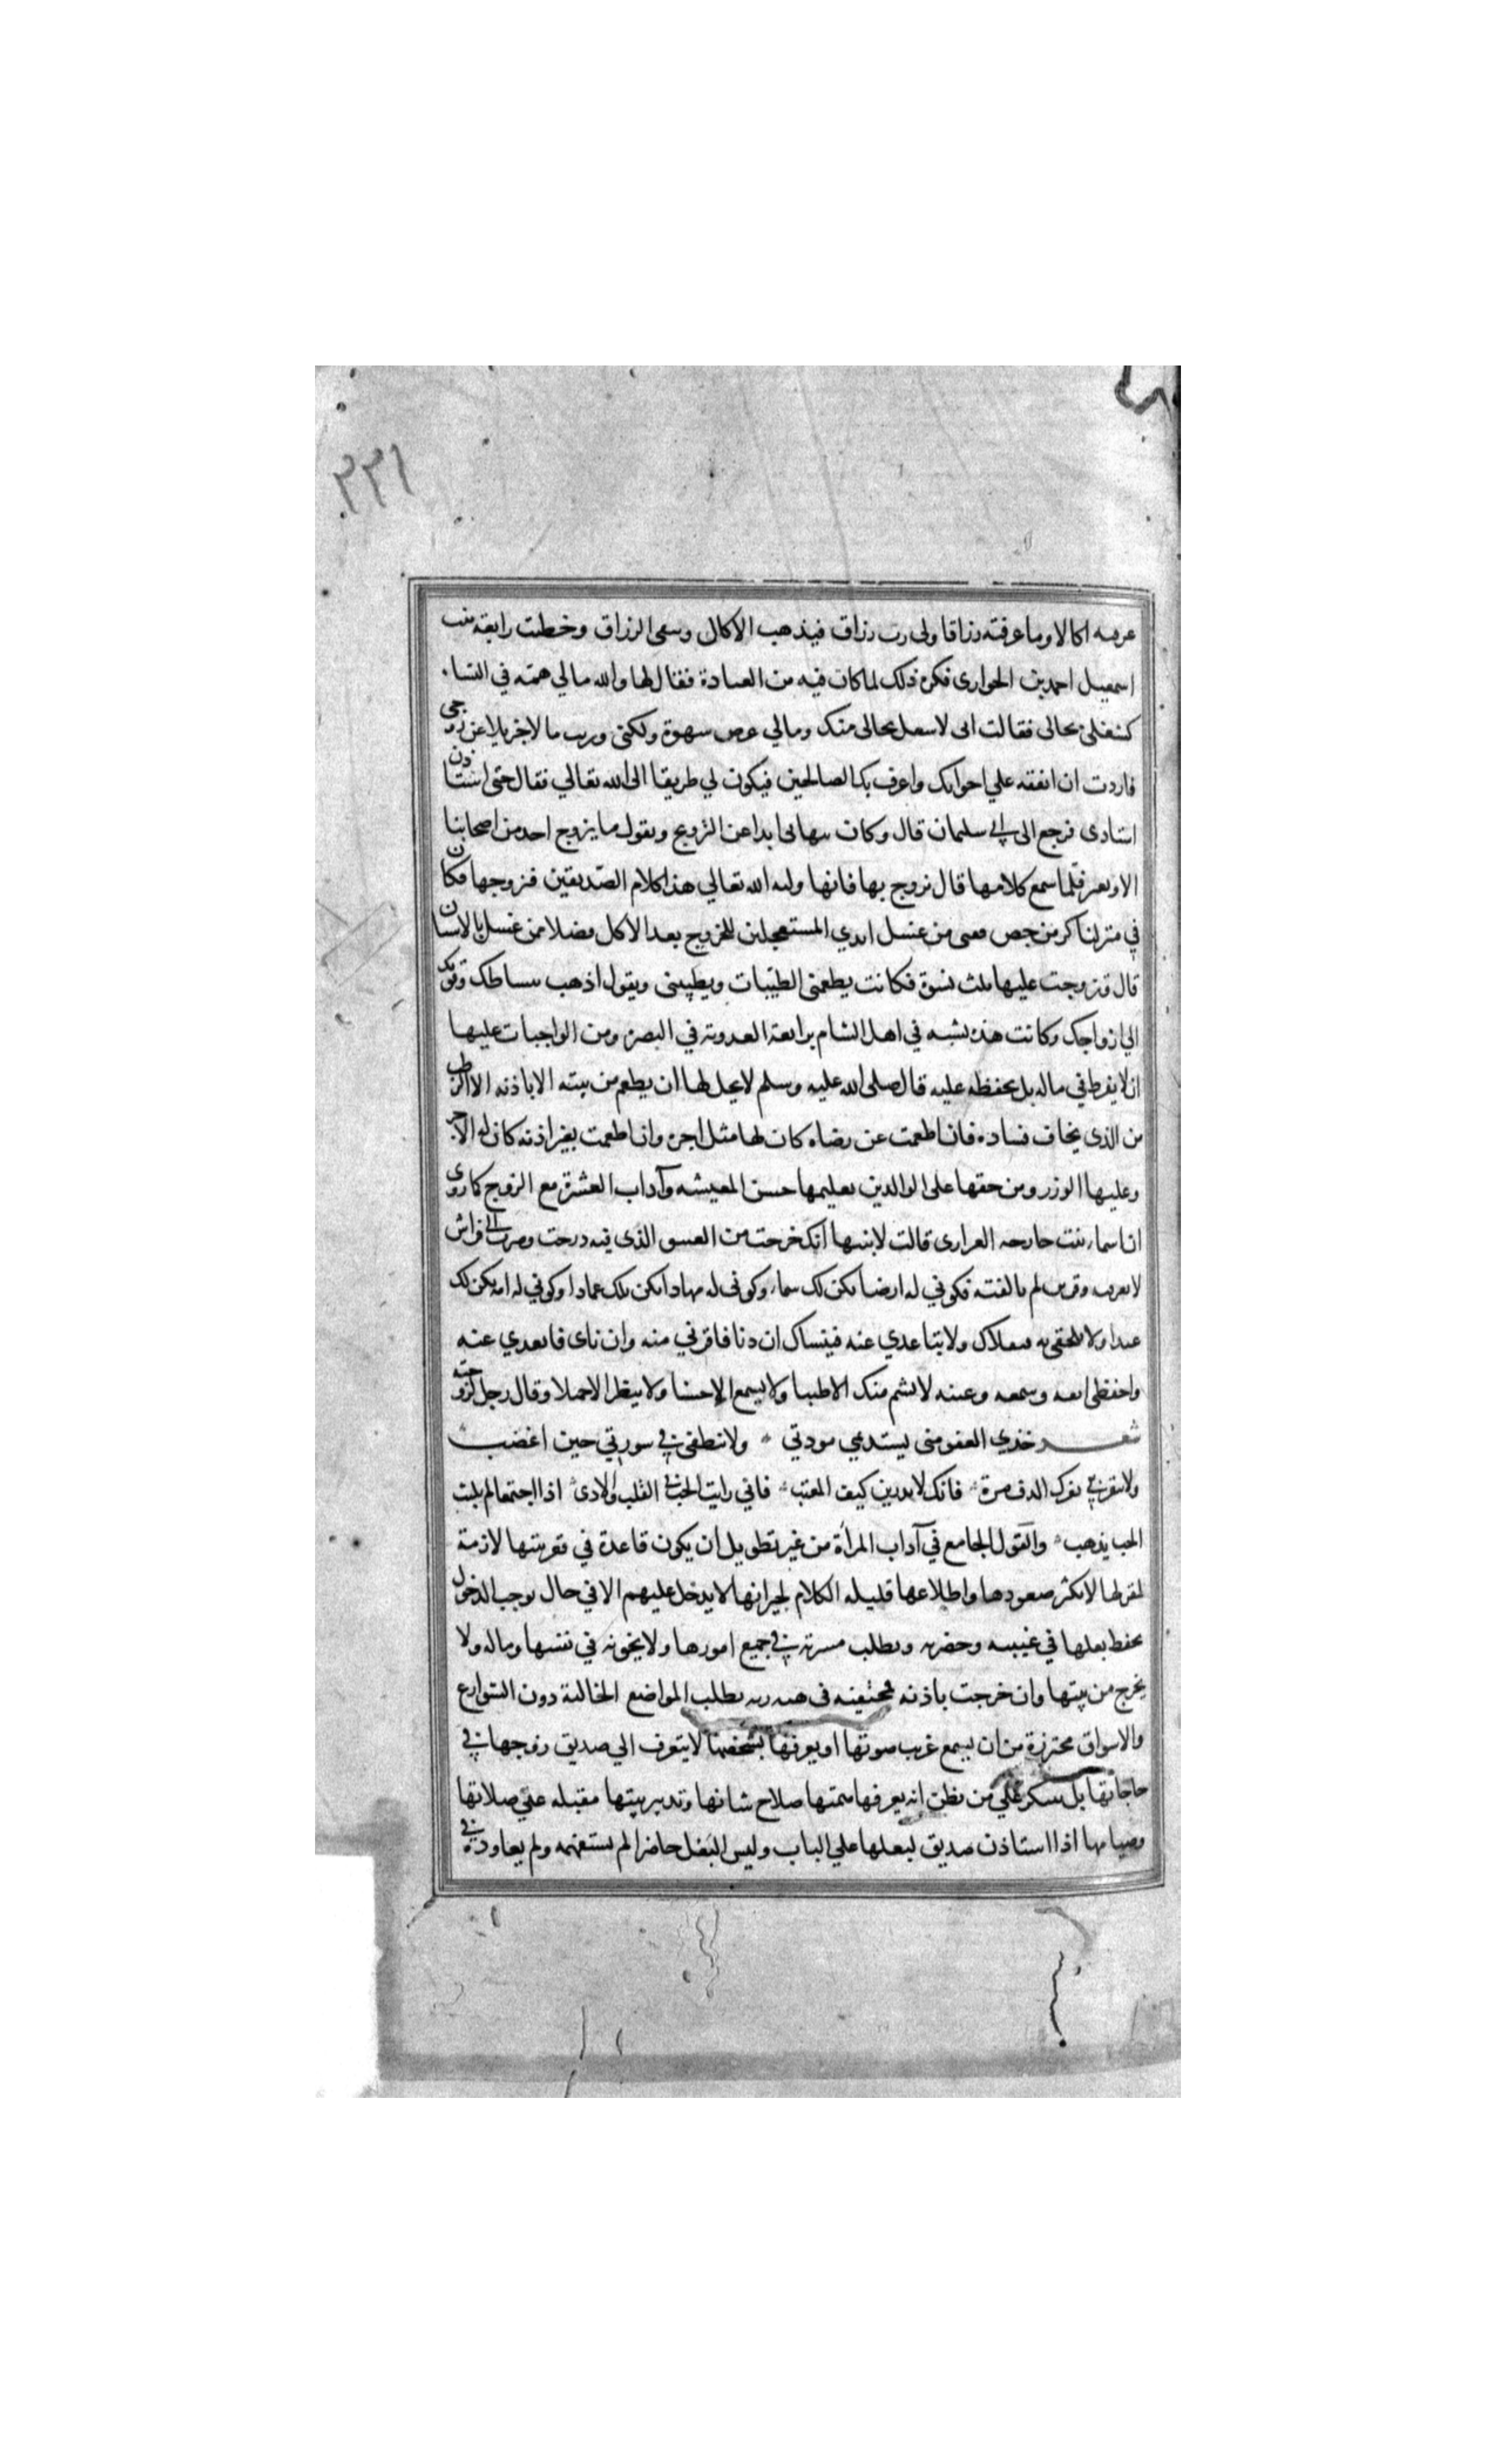 ٣٣١
عرفته اكالا وما عرفته رزاقا ولى رب رزاق فيذهب الاكال وسعى الرزاق وخطبت رابعة بنت
اسمعيل احمد بن الحوارى فكره ذلك لما كان فيه من العبادة فقال لها والله مالي همة في النساء
لشغلى بحالى فقالت انى لاشغل بحالى منك ومالي شهوة ولكنى ورثت مالا جزيلا عن زوجى
فاردت ان انفقه علي اخوانك واعرف بك الصالحين فيكون لي طريقا الى الله تعالي فقال حتى استاذن
استادى فرجع الى ابي سليمان قال وكان ينهانى ابدا عن التزوج ويقول ما تزوج احد من اصحابنا
الا وتغير فلما سمع كلامها قال تزوج بها فانها ولية الله تعالي هذا كلام الصديقين فتزوجها فكان
في منزلنا كر من جص ففنى من غسل ايدي المستعجلين للخروج بعد الاكل فضلا من غسل بالاشنان
قال فتزوجت عليها ثلث نسوة فكانت تطعمنى الطيبات وتطيبنى وتقول اذهب بنشاطك وقوتك
الي ازواجك وكانت هذه تشبه في اهل الشام برابعة العدوية في البصرة ومن الواجبات عليها
ان لا يفرط في ماله بل تحفظه عليه قال صلى الله عليه وسلم لا يحل لها ان يطعم من بيته الا باذنه الا الرطب
من الذى يخاف فساده فان اطعمت عن رضاه كان لها مثل اجره وان اطعمت بغير اذنه كان له الاجر
وعليها الوزر ومن حقها على الوالدين تعليمها حسن المعيشه وآداب العشرة مع الزوج كما روى
ان اسماء بنت خارجه الفزارى قالت لابنتها انك خرجت من العش الذى فيه درجت وصرت الي فراش
لا تعرفيه وقرين لم تالفيه فكوني له ارضا يكن لك سماء وكونى له مهادا يكن لك عمادا وكوني له امة يكن لك
عبدا ولا تلحفى به فيقلاك ولا يتباعدي عنه فينساك ان دنا فاقربي منه وان ناى فابعدي عنه
واحفظى انفه وسمعه وعينه لا يشم منك الا طيبا ولا يسمع الا حسنا ولا ينظر الا جميلا وقال رجل لزوجته
شعر خذي العفو منى يستديمي مودتي ولا تنطقى في سورتي حين اغضب
ولا تنقرينى نقرك الدف مرة فانك لا تدرين كيف المغيب فاني رايت الحب في القلب والاذى اذا اجتمعا لم يلبث
الحب يذهب والقول الجامع في آداب المرأة من غير تطويل ان يكون قاعدة في قعر بيتها لازمة
لمغزلها لا يكثر صعودها واطلاعها قليله الكلام لجيرانها لا يدخل عليهم الا في حال يوجب الدخول
تحفظ بعلها في غيبته وحضرته وتطلب مسرته في جميع امورها ولا يخونه في نفسها وماله ولا
يخرج من بيتها وان خرجت باذنه فمختفيه فى تطلب المواضع الخالية دون الشوارع
والاسواق محترزة من ان يسمع غريب صوتها او يعرفها بشخصها لا يتعرف الي صديق زوجها في
حاجاتها بل تتنكر علي من يظن انه يعرفها همتها صلاح شانها وتدبير بيتها مقبله علي صلاتها
وصيامها اذا استاذن صديق لبعلها علي الباب وليس البعل حاضرا لم يستفهمه ولم يعاوده في